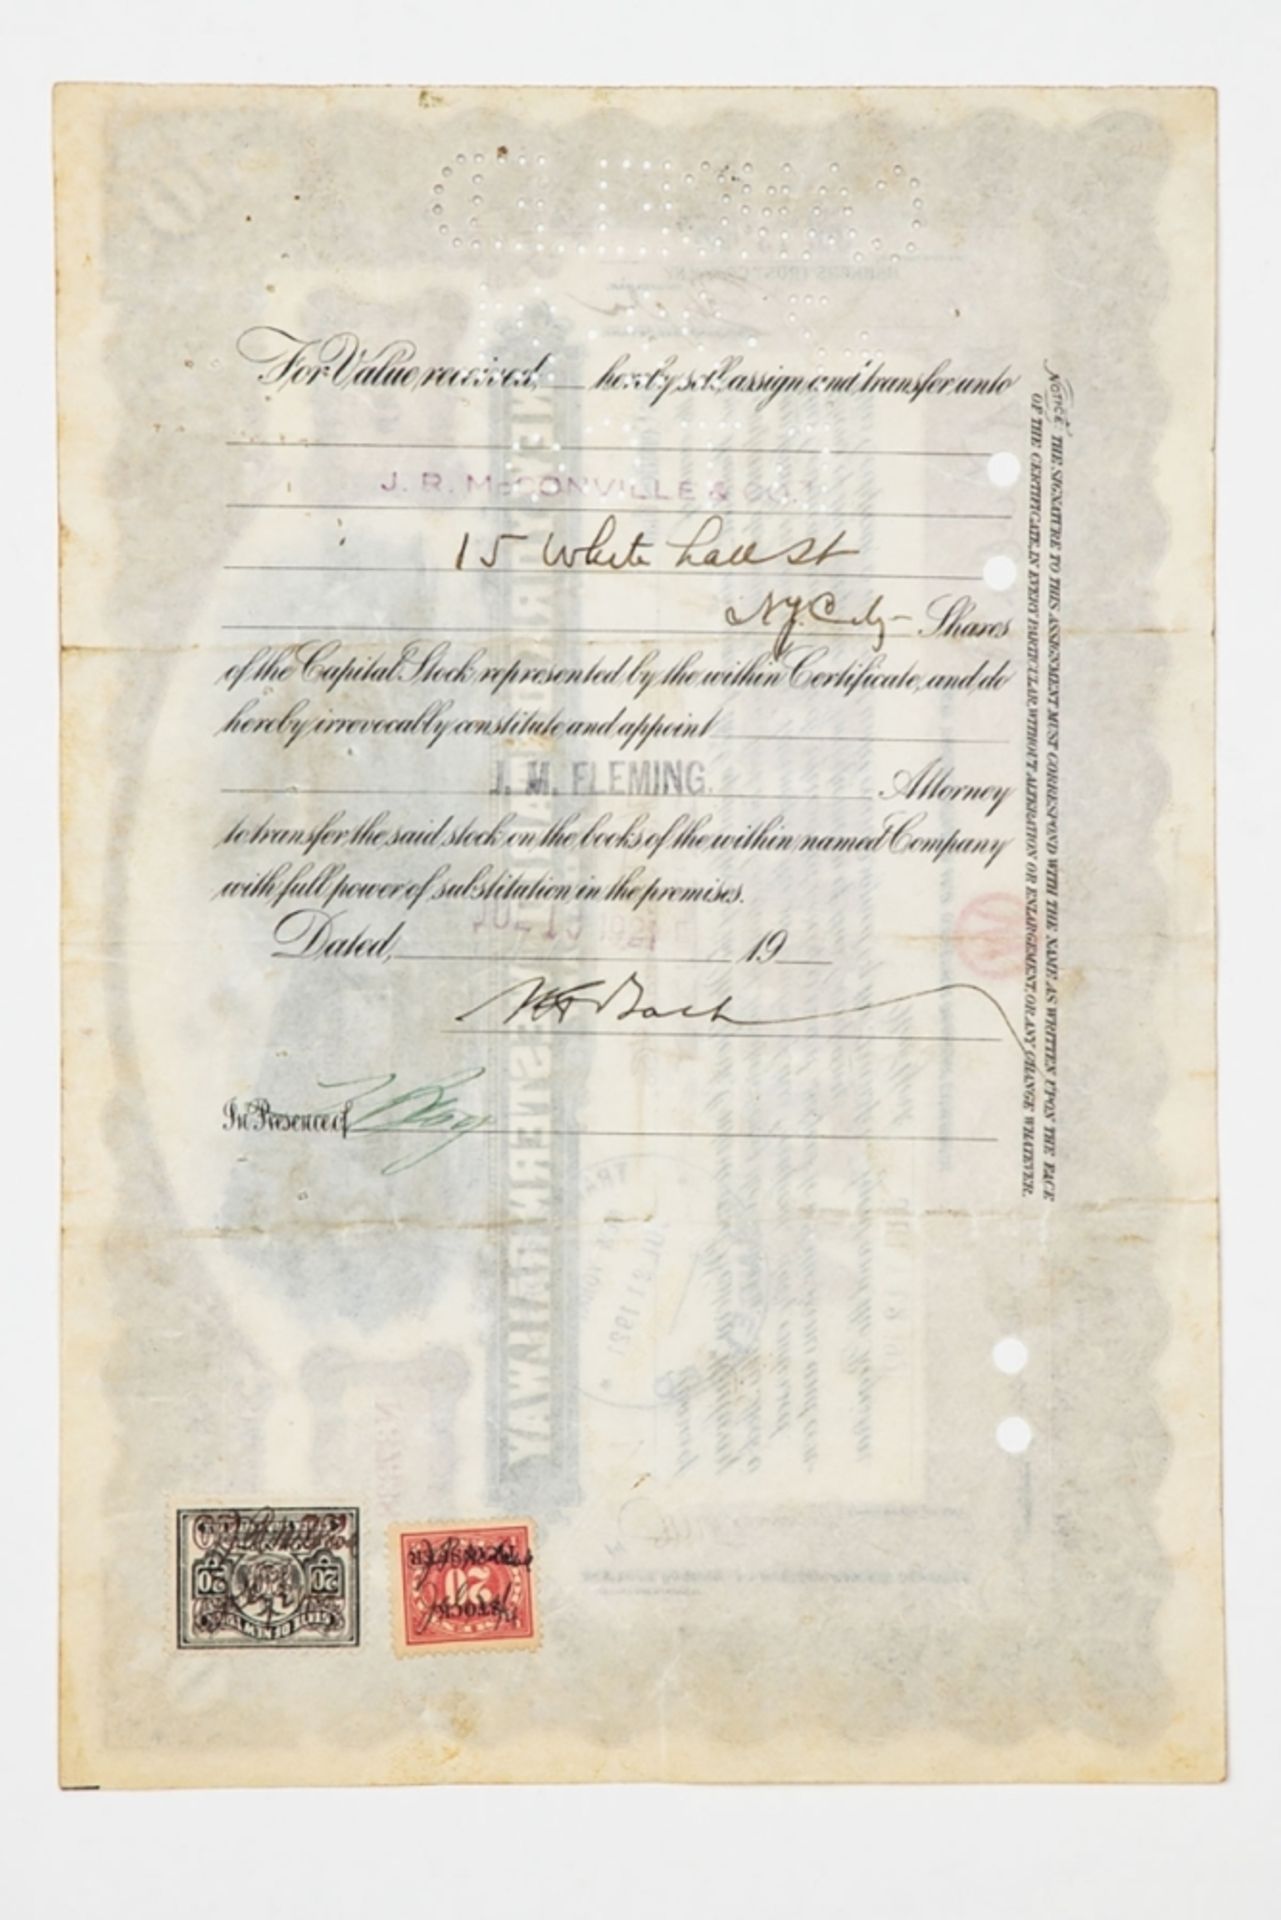 For Value received, hereby sell, assign and transfer unto
J. R. McCONVILLE & CO.
15 White hall St
N.Y. City Shares
of the Capital Stock represented by the within Certificate, and do
hereby irrevocably constitute and appoint
J. M. FLEMING. Attorney
to transfer the said stock on the books of the within named Company
with full power of substitution in the premises.
JUL 13 1921
Dated, 19
In Presence of
NOTICE: THE SIGNATURE TO THIS ASSIGNMENT MUST CORRESPOND WITH THE NAME AS WRITTEN UPON THE FACE
OF THE CERTIFICATE, IN EVERY PARTICULAR, WITHOUT ALTERATION OR ENLARGEMENT, OR ANY CHANGE WHATEVER.
20 20
STATE OF NEW YORK
TRANSFER
20
STOCK